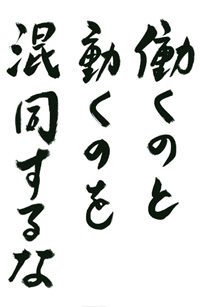 働くのと
動くのを
混同するな